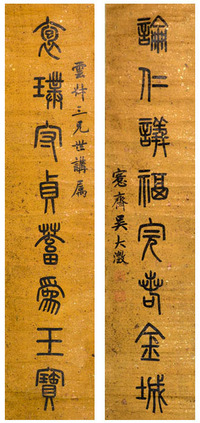 論仁議福完若金城
愙齋吳大澂
雲三兄世講屬
褱璞守貞蓄爲王寶